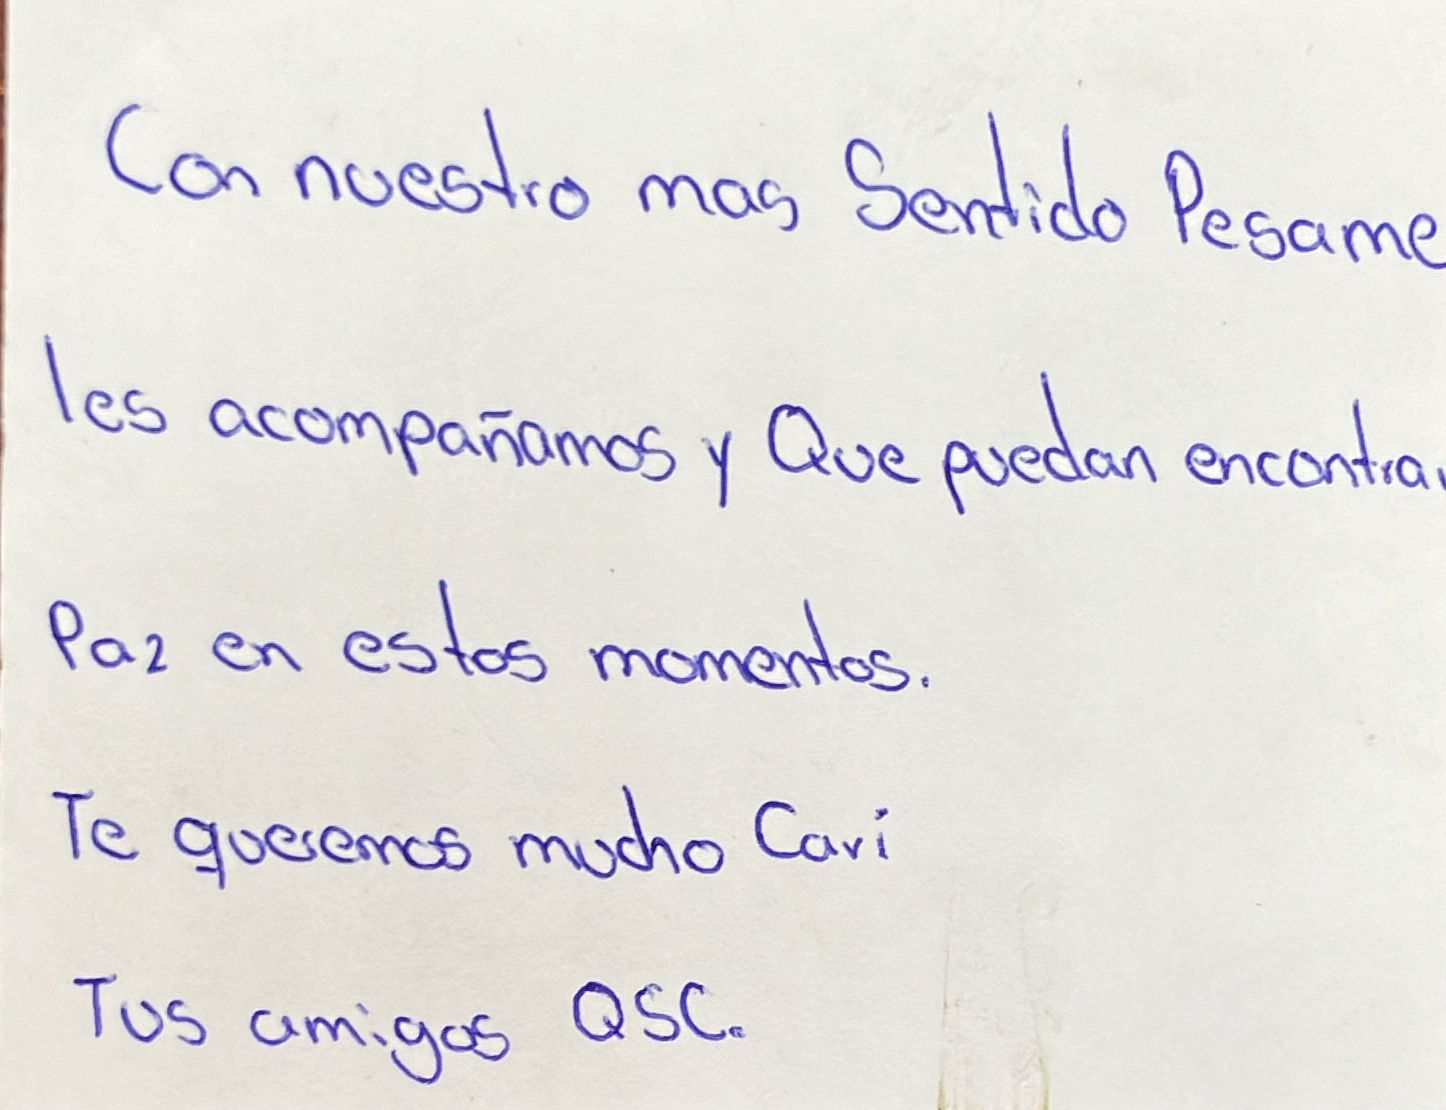 Con nuestro mas Sentido Pesame
les acompañamos y Que puedan encontrar
Paz en estos momentos.
Te queremos mucho Cari
Tus amigos QSC.